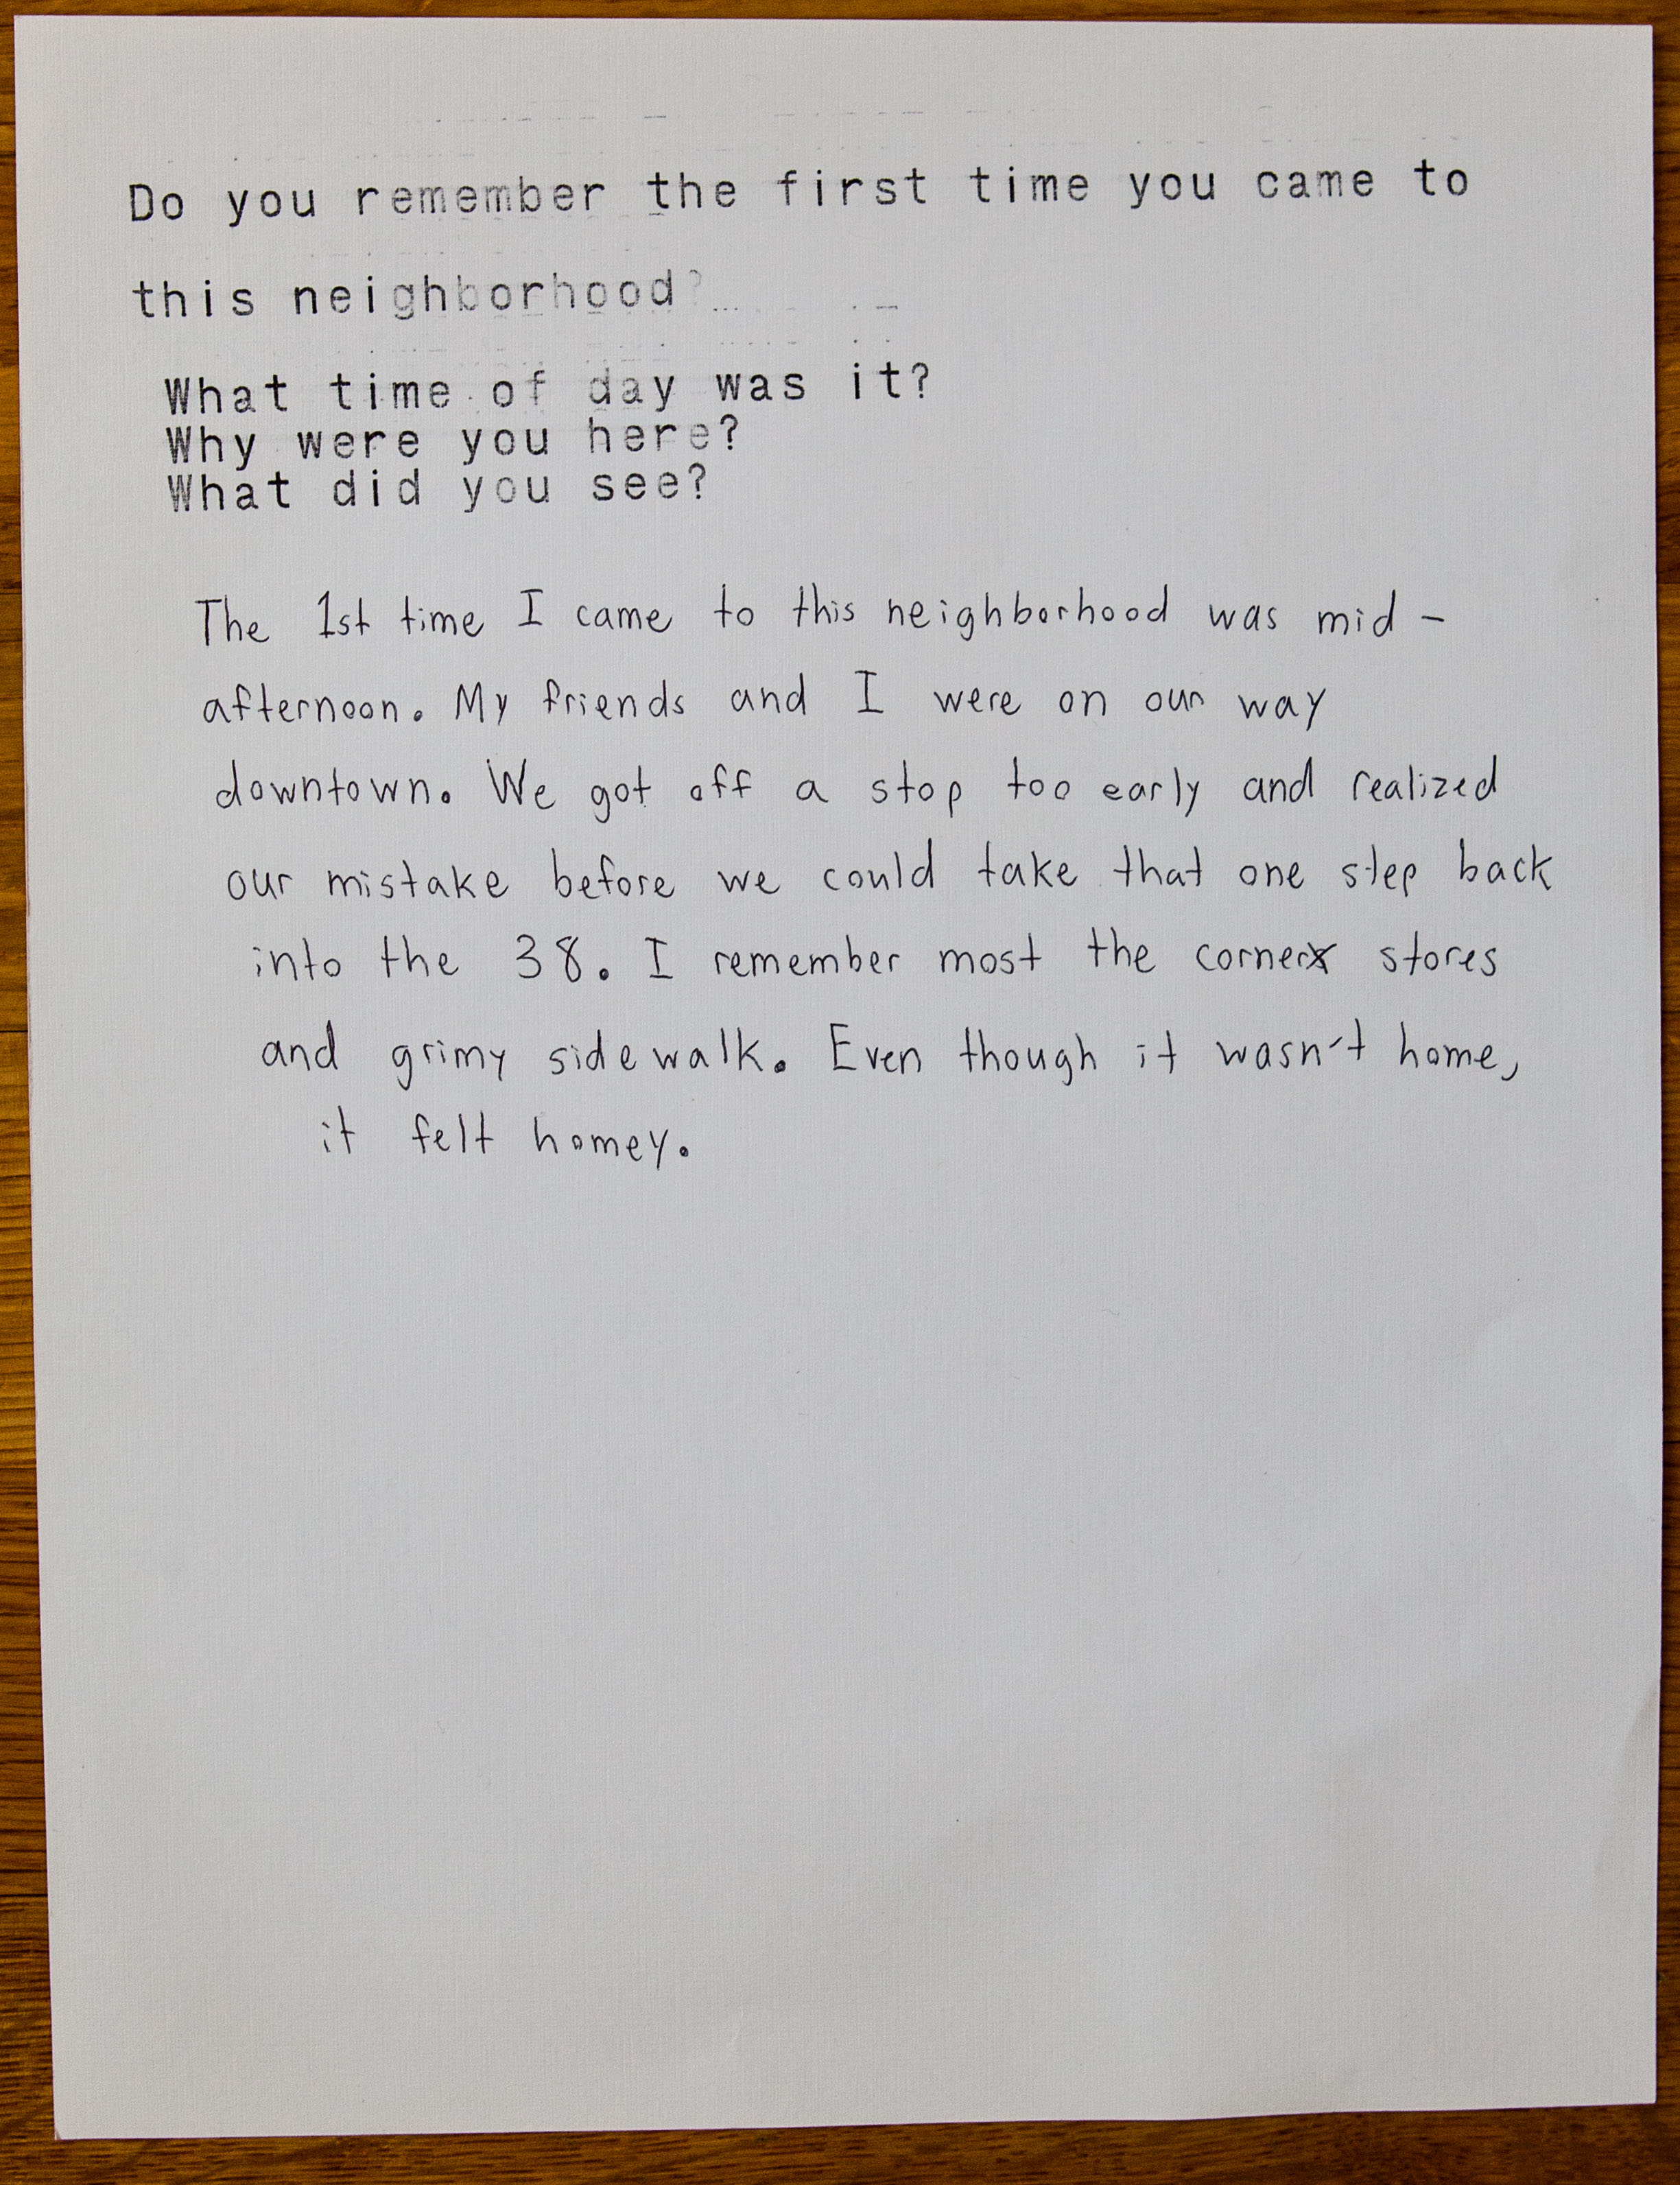 Do you remember the first time you came to
this neighborhood?
What time of day was it?
Why were you here?
What did you see?
The 1st time I came to this neighborhood was mid-
afternoon. My friends and I were on our way
downtown. We got off a stop too early and realized
our mistake before we could take that one step back
into the 38. I remember most the corner stores
and grimy sidewalk. Even though it wasn't home,
it felt homey.